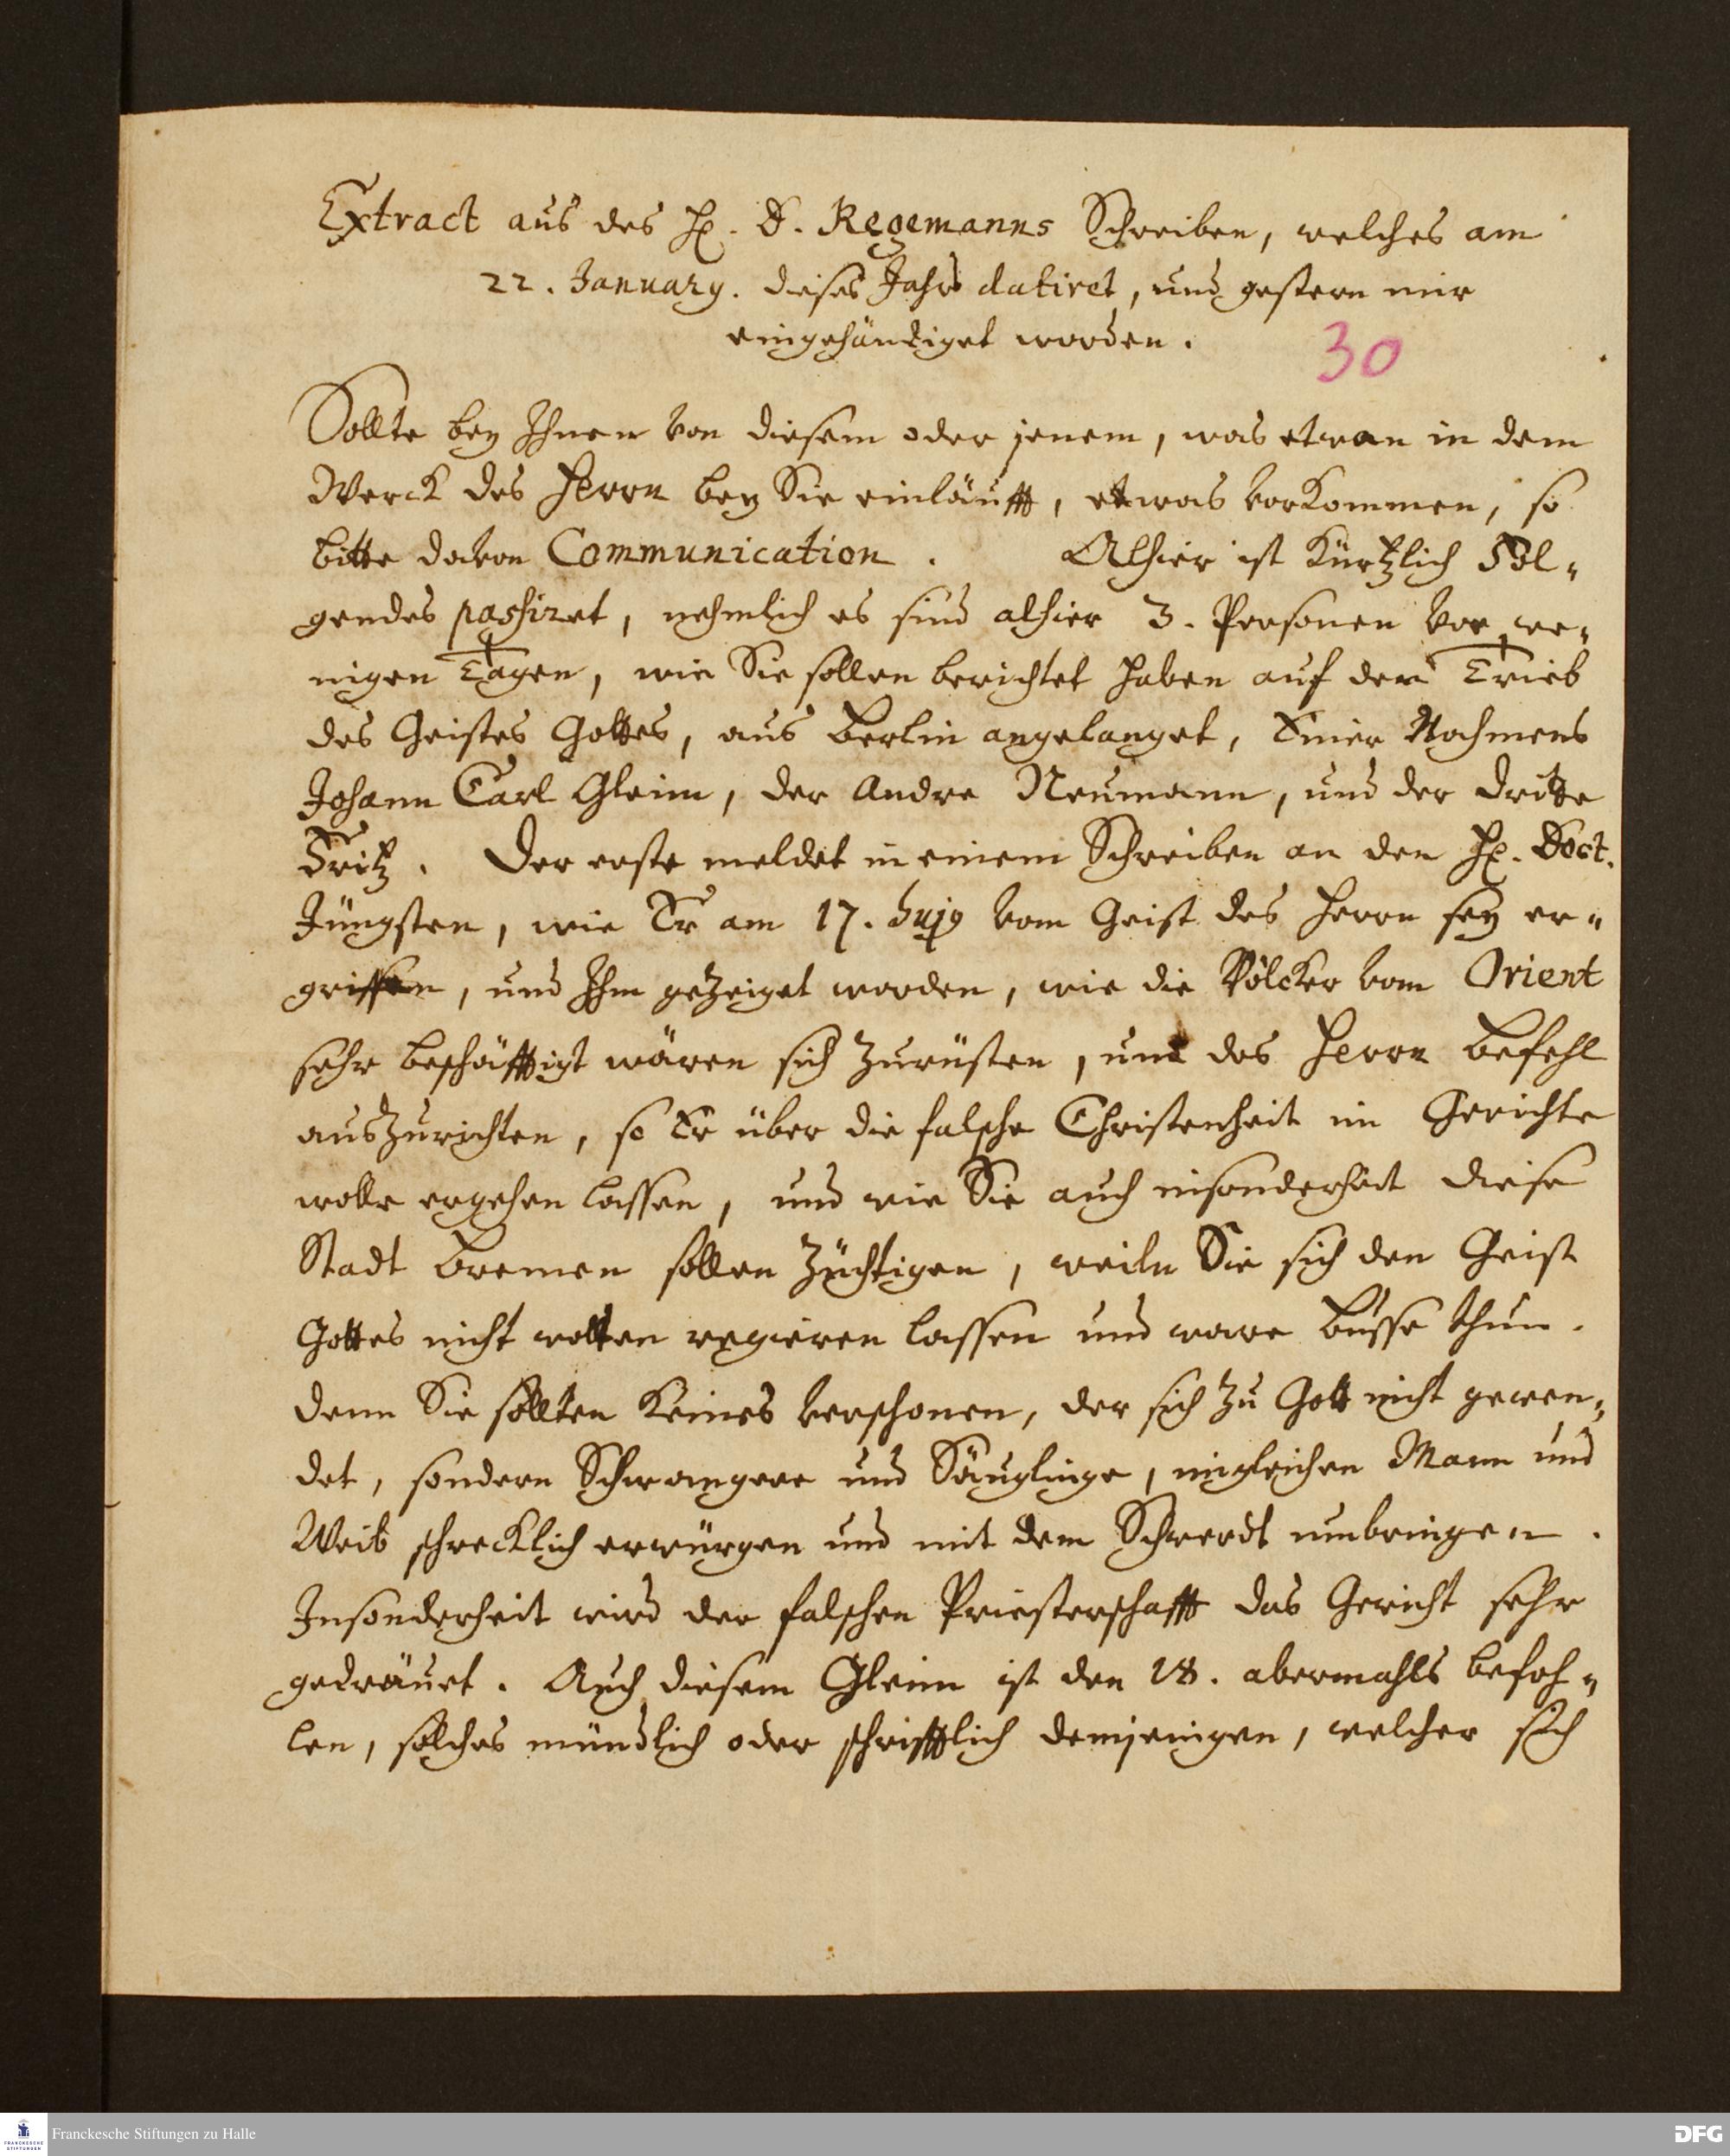 Extract aus des H. D. Regemanns Schreiben, welches am
22. January. dieses Jahrs datiret, und gestern mir
eingehändiget worden.
30
Sollte bey Ihnen von diesem oder jenem, was etwan in dem
Werck des Herrn bey Sie einläufft, etwas vorkommen, so
bitte davon Communication. Alhier ist kürtzlich Fol-
gendes passiret, nehmlich es sind alhier 3. Personen vor we-
nigen Tagen, wie Sie sollen berichtet haben auf den Trieb
des Geistes Gottes, aus Berlin angelanget, Einer Nahmens
Johann Carl Gleim, der Andre Neumann, und der dritte
Fritz. Der erste meldet in einem Schreiben an den H. Doct.
Jüngsten, wie Er am 17. huj9 vom Geist des Herrn sey er-
griffen, und Ihm gezeiget worden, wie die Völcker vom Orient
sehr beschäfftigt wären sich zurüsten, und des Herrn Befehl
auszurichten, so Er über die falsche Christenheit im Gerichte
wolle ergehen lassen, und wie Sie auch insonderheit diese
Stadt Bremen sollen züchtigen, weiln Sie sich den Geist
Gottes nicht wolten regieren lassen und ware Busse thun.
denn Sie sollten keines verschonen, der sich zu Gott nicht gewen-
det, sondern Schwangere und Säuglinge, imgleichen Mann und
Weib schrecklich erwürgen und mit dem Schwerdt umbringen.
Insonderheit wird der falschen Priesterschafft das Gericht sehr
gedräuet. Auch diesem Gleim ist den 18. abermahls befoh-
len, solches mündlich oder schrifftlich demjenigen, welcher sich
Franckesche Stiftungen zu Halle
FRANCKESCHE
STIFTUNGEN
DFG